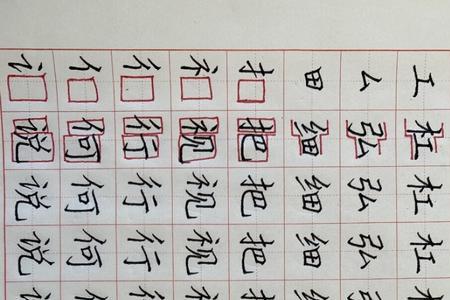 讠 亻 彳 礻 扌 田 厶 工
说 何 行 视 把 细 弘 杠
说 何 行 视 把 细 弘 杠
说 何 行 视 把 细 弘 杠